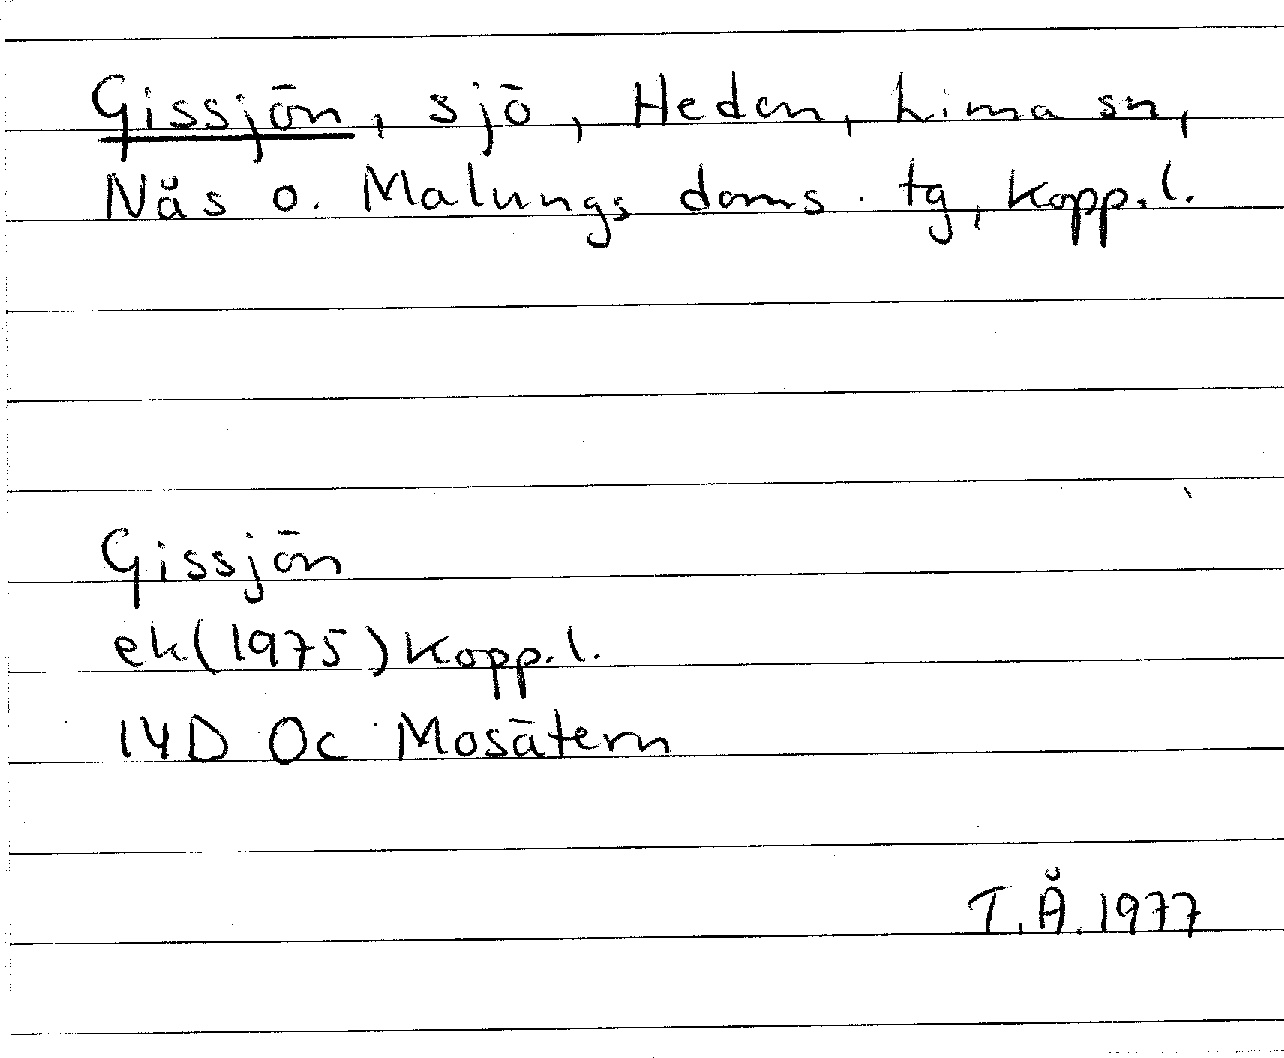 Gissjön, sjö, Heden, Lima sn,
Nås o. Malungs doms. tg, Kopp.l.
Gissjön
ek(1975)Kopp.l.
14D 0c Mosätern
T.Å.1977